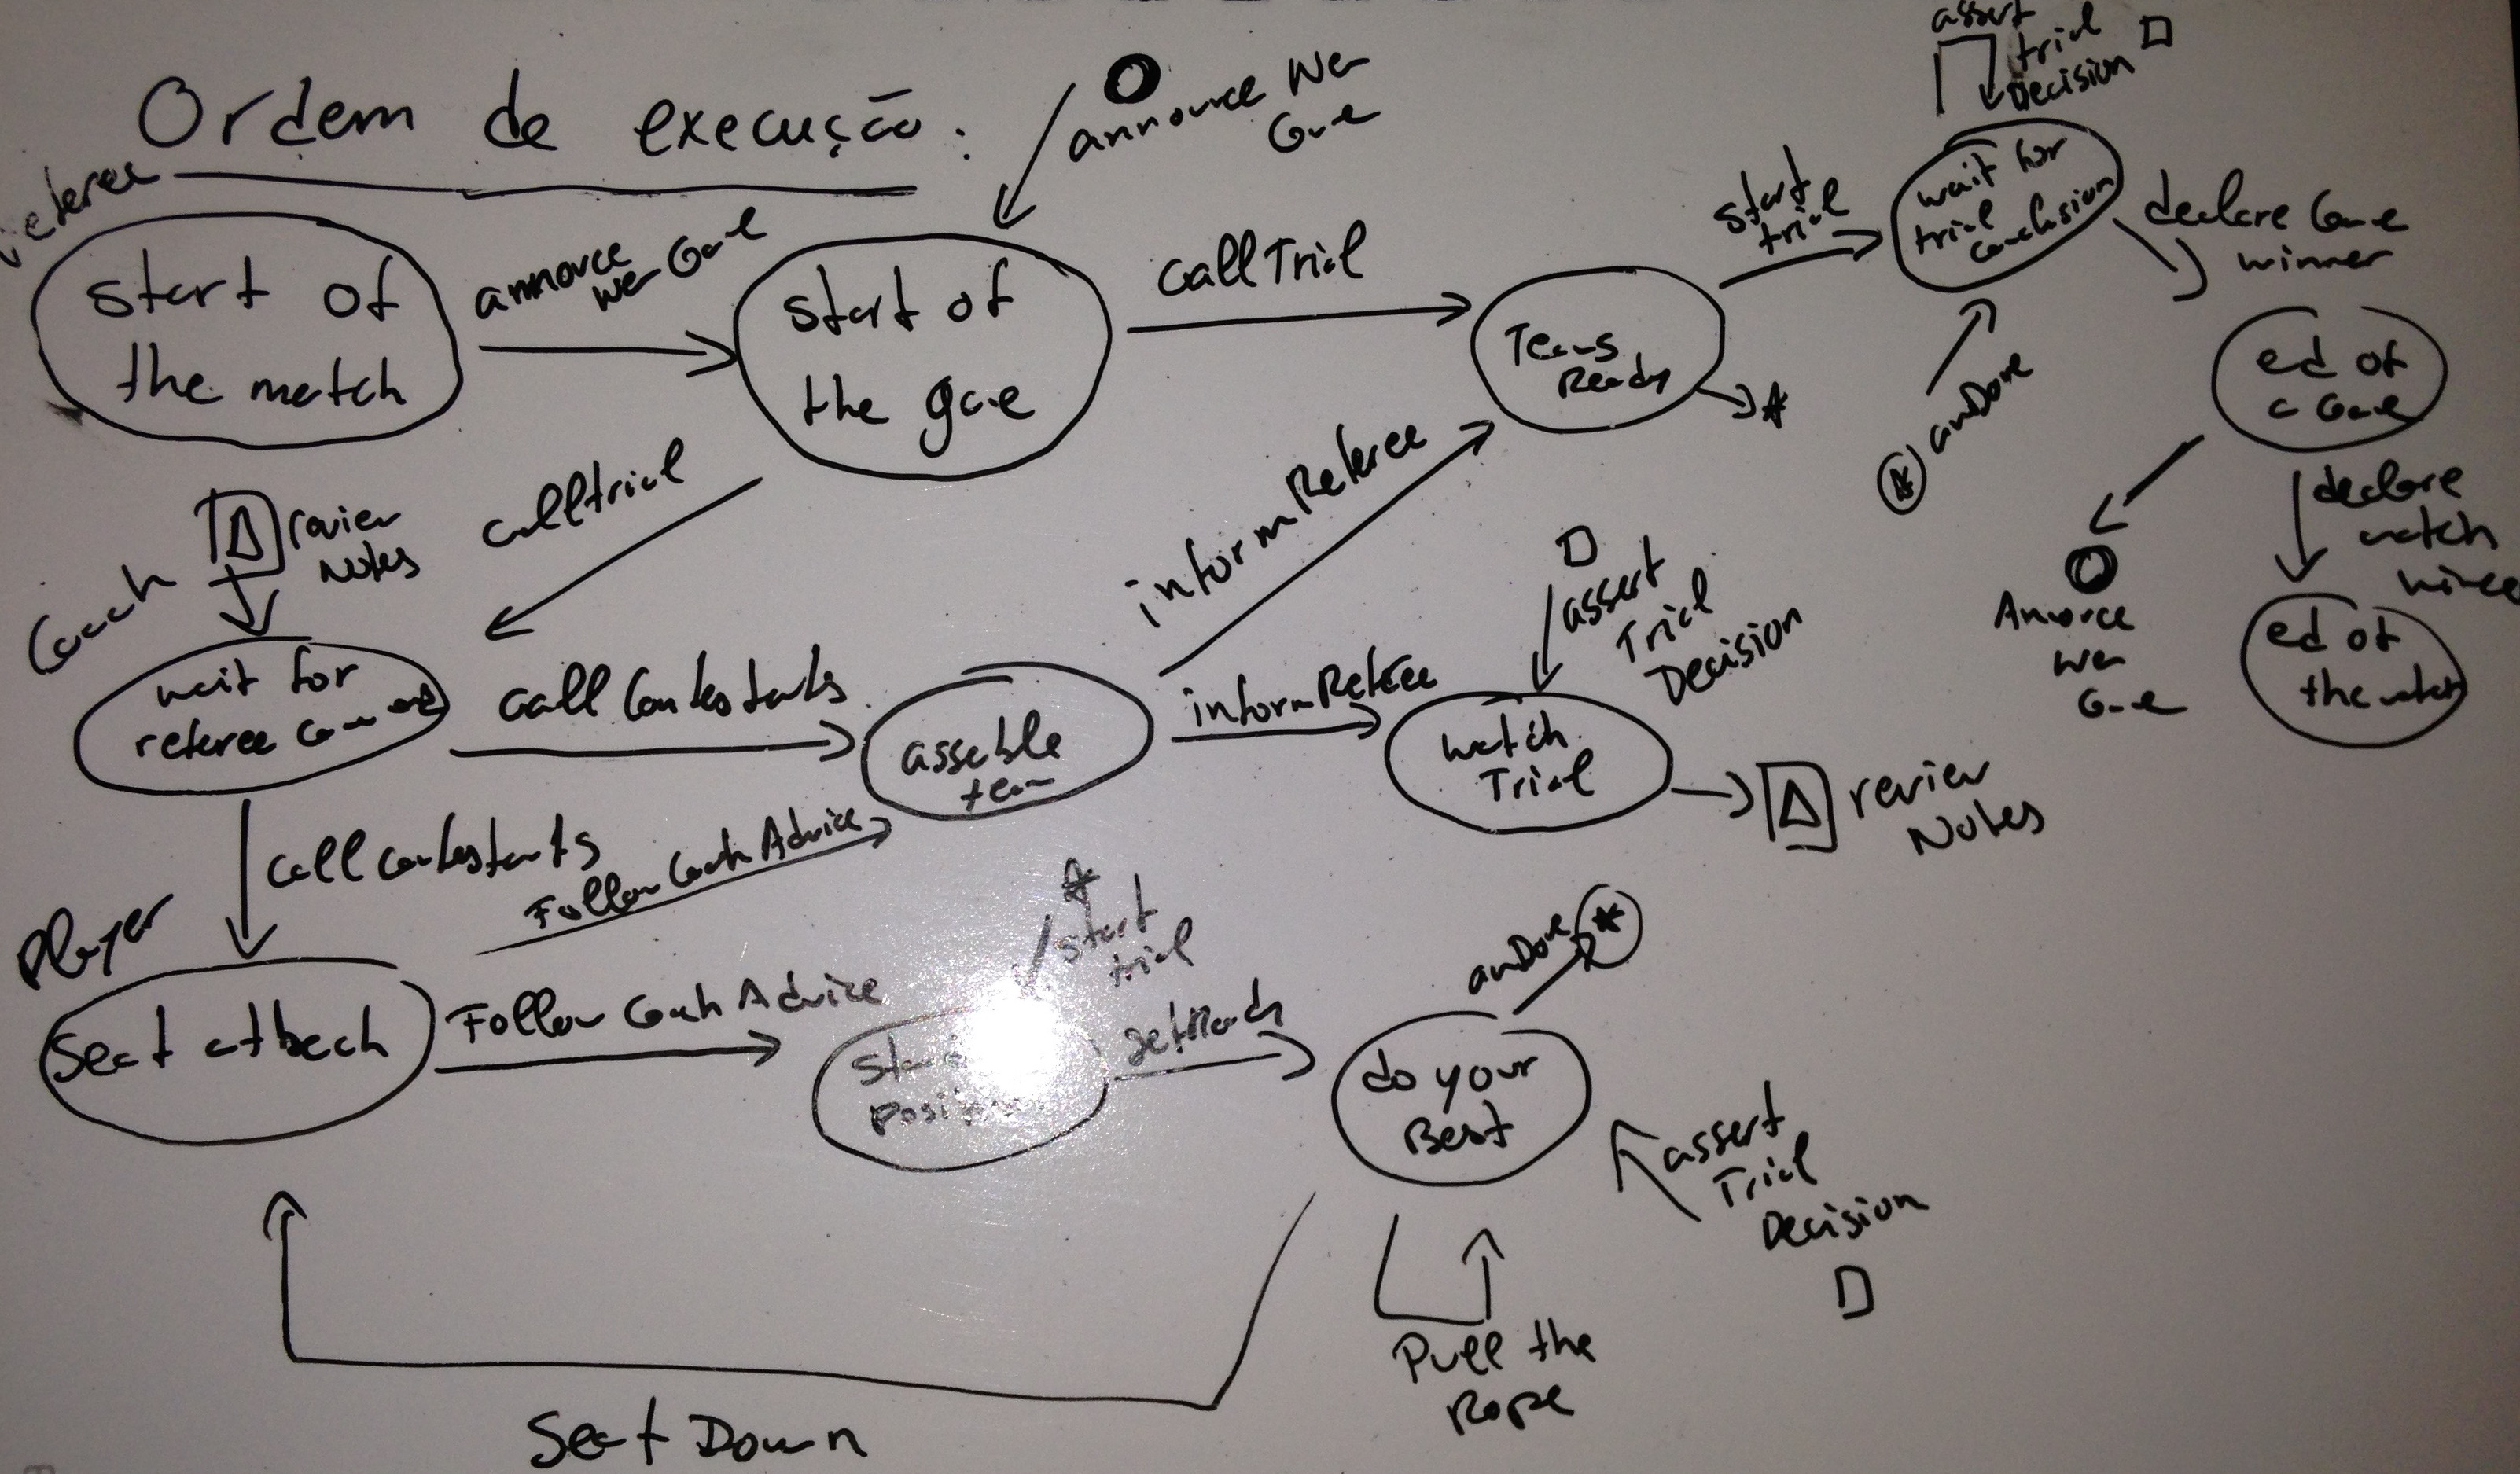 Ordem de execução:
referee
start of
the match
annouce
New Game
start of
the game
announce New
Game
callTrial
Teams
Ready
start
trial
assert
trial
Decision
wait for
trial
conclusion
declare Game
winner
amDone
ed of
a Game
declare
match
Annouce
New
Game
ed of
the match
Coach
review
Notes
calltrial
wait for
referee
call Contestants
asseble
team
informReferee
informReferee
assert
Trial
Decision
watch
Trial
review
Notes
call contestants
Follow Coach Advice
Player
Seat at bech
Follow Coach Advice
start
trial
position
getReady
do your
Best
amDone
assert
Trial
Decision
Pull the
Rope
Seat Down